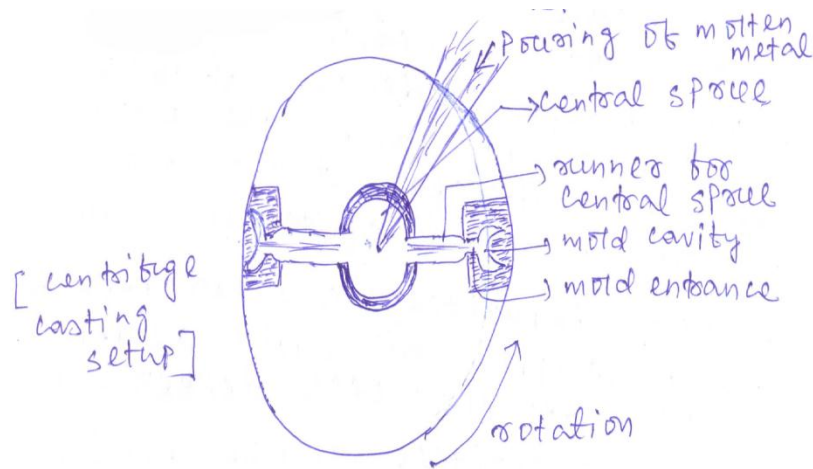 Pouring of molten
metal
central sprue
runner for
central sprue
mold cavity
mold entrance
[centrifuge
casting
setup]
rotation